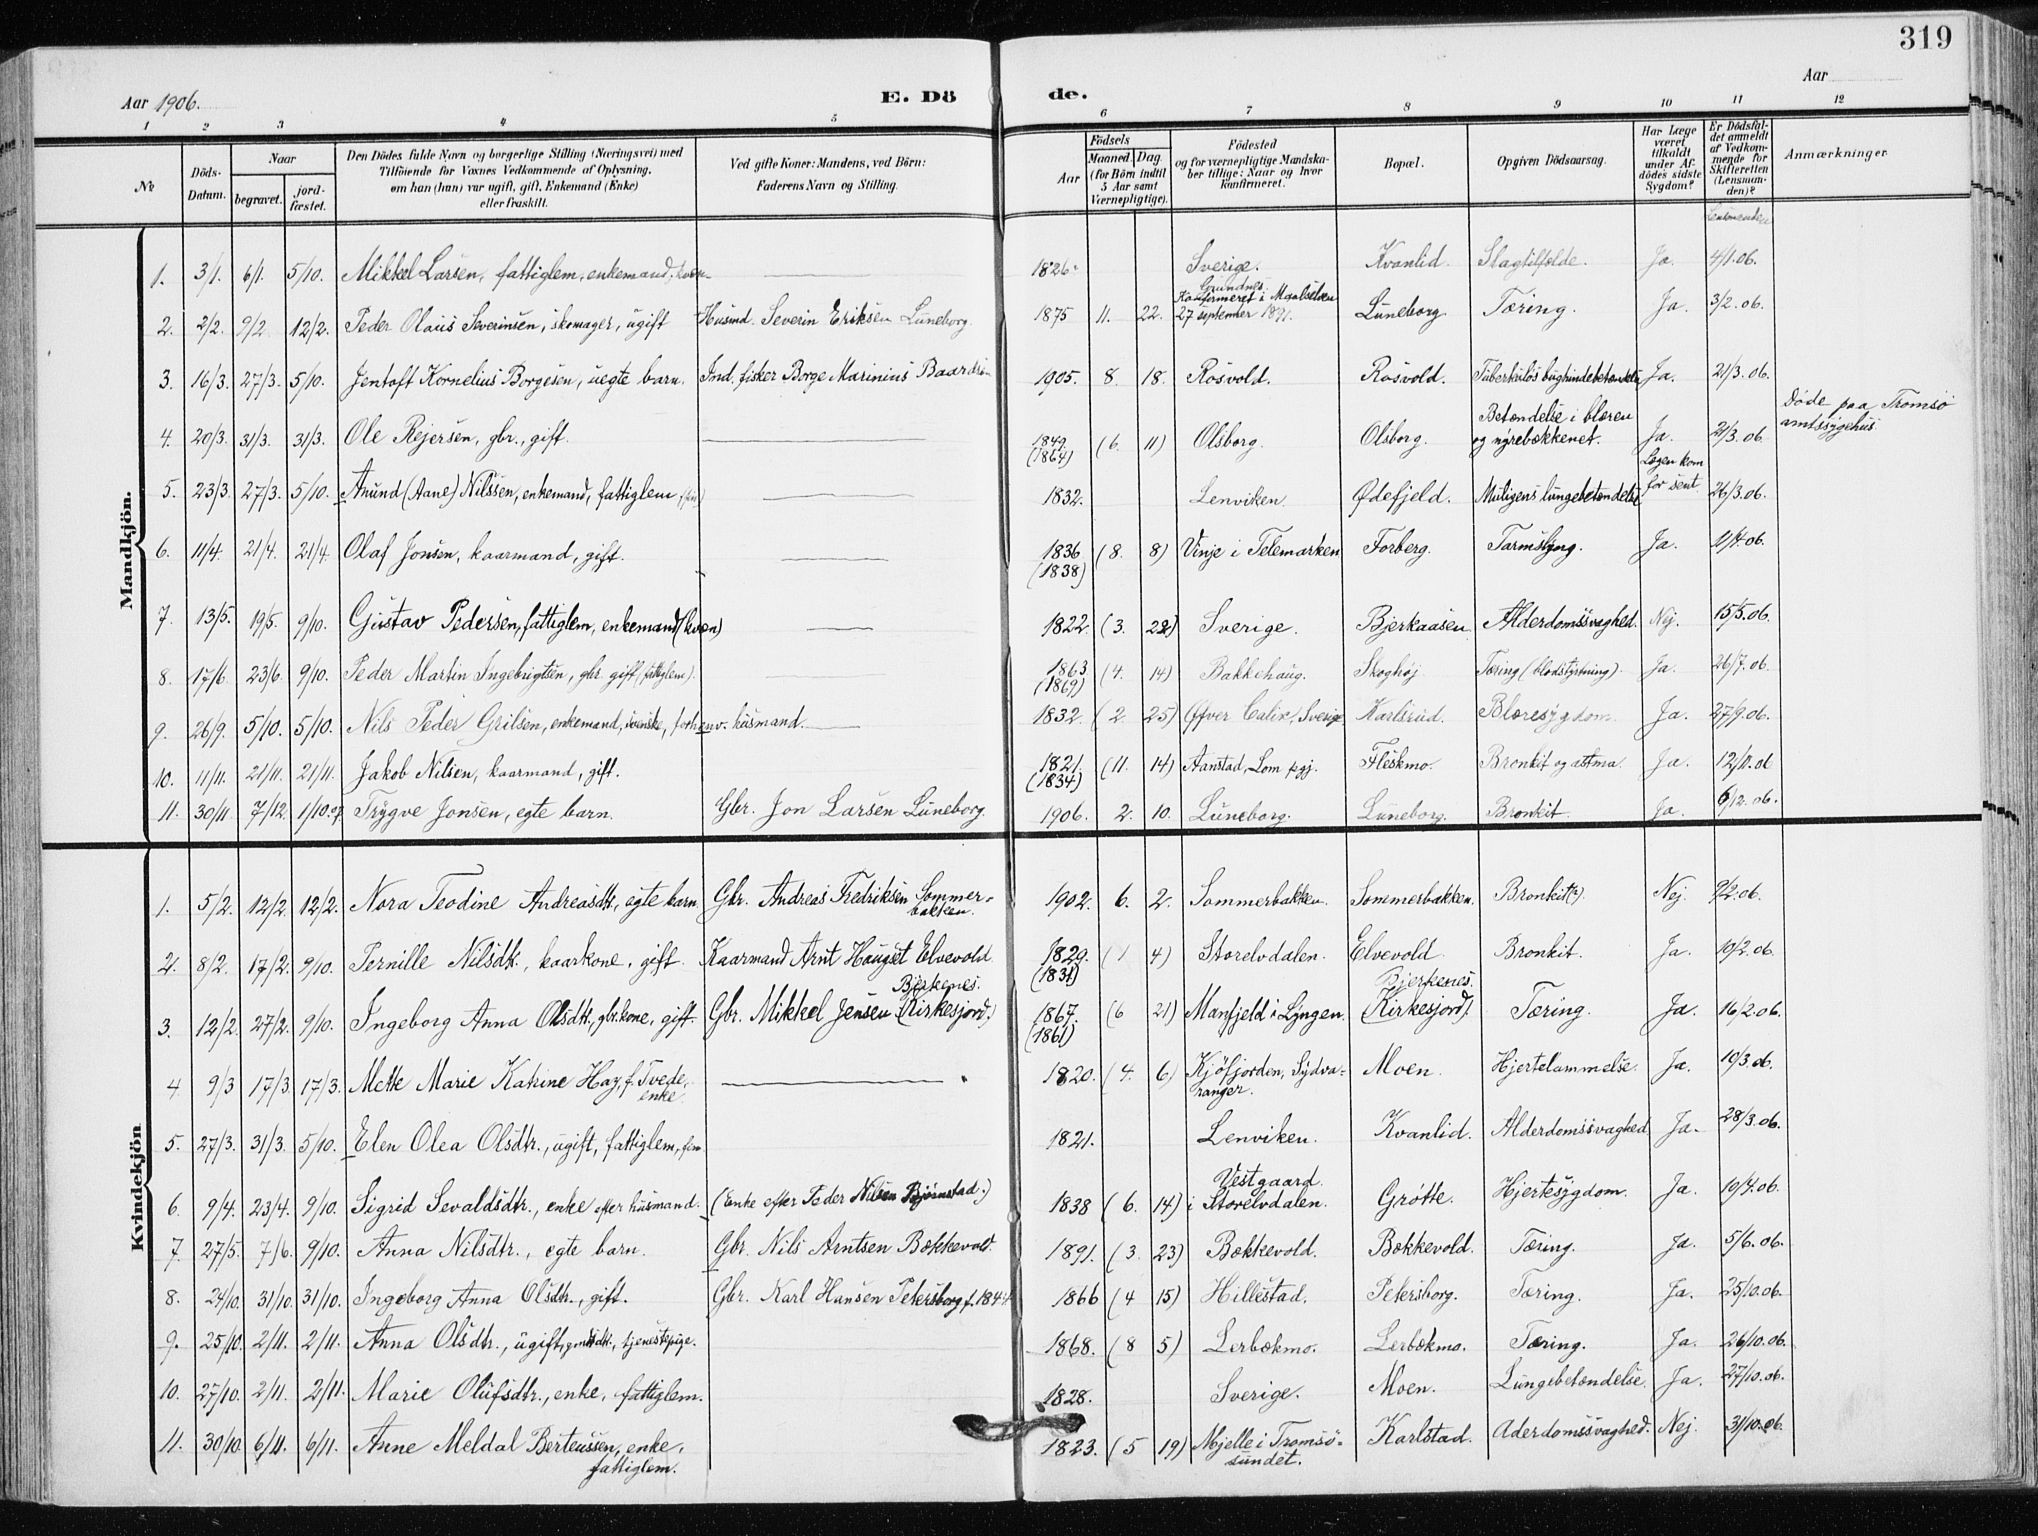 319
Aar 1906.
E. Dö
de.
Aar
1 2 3 4 5 6 7 8 9 10 11 12
№
Döds-Datum.
Naar
begravet.
jord-fæstet.
Den Dödes fulde Navn og borgerlige Stilling (Næringsvei) med
Tilföiende for Voxnes Vedkommende af Oplysning,
om han (hun) var ugift, gift, Enkemand (Enke)
eller fraskilt.
Ved gifte Koner: Mandens, ved Börn:
Faderens Navn og Stilling.
Födsels
Aar
Maaned. Dag
(for Börn indtil
5 Aar samt
Værnepligtige).
Födested
og for værnepligtige Mandskaber tillige: Naar og hvor
konfirmeret.
Bopæl.
Opgiven Dödsaarsag.
Har Læge
været
tilkaldt
under Afdödes sidste
Sygdom?
Er Dödsfaldet anmeldt
af Vedkommende for
Skifteretten
(Lensmanden)?
Anmærkninger
Lensmanden
Mandkjön.
1. 3/1. 6/1. 5/10. Mikkel Larsen, fattiglem, enkemand, kvæn 1826. Sverige. Kvanlid. Slagtilfelde. Ja. 4/1.06.
2. 2/2. 9/2 12/2. Peder Olaus Severinsen, skomager, ugift Husmd. Severin Eriksen Luneborg. 1875 11. 22. Grundnes. Konfirmeret i Maalselven 27 september 1891. Luneborg. Tæring. Ja. 3/2.06.
3. 16/3. 27/3. 5/10. Jentoft Kornelius Borgesen, uegte barn. Ind. fisker Borge Marinius Baardsen 1905. 8. 18. Rosvold. Rosvold. Tuberkuløs bughindebetændelse Ja. 21/3.06.
4. 20/3. 31/3. 31/3. Ole Rejersen, gbr., gift. 1849. (1864) (6. 11) Olsborg. Olsborg. Betændelse i blæren og nyrebækkenet. Ja. 21/3.06. Døde paa Tromsø amtssygehus
5. 23/3. 27/3. 5/10. Anund (Aane) Nilssen, enkemand, fattiglem 1832. Lenviken. Ødefjeld. Muligens lungebetændelse Lægen kom for sent. 26/3.06.
6. 11/4. 21/4. 21/4. Olaf Jonsen, kaarmand, gift. 1836 (1838) (8. 8) Vinje i Telemarken Forberg. Tarmslyng. Ja. 11/4.06.
7. 13/5. 19/5. 9/10. Gustav Pedersen, fattiglem, enkemand (kvæn) 1822. (3. 22) Sverige. Bjerkaasen. Alderdomssvaghed. Nej. 15/5.06.
8. 17/6. 23/6. 9/10. Peder Martin Ingebrigtsen, gbr. gift (fattiglem). 1863 (1869) (4. 14) Bakkehaug. Skoghøj. Tæring (blodstyrtning). Ja. 26/7.06.
9. 26/9. 5/10. 5/10. Nils Peder Grilsen, enkemand, svenske, forhenv. husmand. 1832. (2. 25) Øfver Calix, Sverige Karlsrud. Blæresygdom. Ja. 27/9.06.
10. 11/11. 21/11. 21/11. Jakob Nilsen, kaarmand, gift. 1821. (1834) (11. 14) Aanstad, Lom pgj. Fleskmo. Bronkit og astma. Ja. 12/11.06
11. 30/11. 7/12. 1/10.07. Trygve Jonsen, egte barn. Gbr. Jon Larsen Luneborg. 1906. 2. 10. Luneborg. Luneborg. Bronkit. Ja. 6/12.06.
Kvindekjön
1. 5/2. 12/2. 12/2. Nora Teodine Andreasdtr., egte barn. Gbr. Andreas Fredriksen Sommerbakken. 1902. 6. 2. Sommerbakken. Sommerbakken. Bronkit(?). Nej. 9/2.06.
2. 8/2. 17/2. 9/10. Pernille Nilsdtr., kaarkone, gift. Kaarmand Arnt Hauget Elvevold 1829. (1831) (1 4) Storelvdalen. Elvevold Bronkit. Ja. 10/2.06.
3. 12/2. 27/2. 9/10. Ingeborg Anna Olsdtr., gbr.kone, gift. Gbr. Mikkel Jensen Bjerkenes. (Kirkesjord.) 1867. (1861) (6 21) Manfjeld i Lyngen. Bjerkenes. (Kirkesjord). Tæring. Ja. 16/2.06.
4 9/3 17/3 17/3. Mette Marie Katrine Hay, f. Tvede, enke. 1820. (4. 6) Kjøfjorden, Sydvaranger. Moen. Hjertelammelse. Ja. 10/3.06.
5. 27/3. 31/3. 5/10. Elen Olea Olsdtr., ugift, fattiglem, 1821. Lenviken. Kvanlid. Alderdomssvaghed Ja. 28/3.06.
6. 9/4. 23/4. 9/10. Sigrid Sevaldsdtr., enke efter husmand. (Enke efter Peder Nilsen Bjørnstad.) 1838 (6. 14) Vestgaard i Storelvdalen. Grøtte. Hjertesygdom. Ja. 10/4.06.
7. 27/5. 7/6. 9/10. Anna Nilsdtr., egte barn. Gbr. Nils Arntsen Bækkevold. 1891. (3. 23) Bækkevold. Bækkevold. Tæring. Ja. 5/6.06.
8. 24/10. 31/10. 31/10. Ingeborg Anna Olsdtr., gift. Gbr. Karl Hansen Petersborg f. 1844 1866 (4 15) Hillestad. Petersborg. Tæring. Ja. 25/10.06.
9. 25/10. 2/11. 2/11. Anna Olsdtr., ugift, tjenestepige. 1868. (8 5) Lerbækmo. Lerbækmo. Tæring. Ja. 26/10.06.
10. 27/10. 2/11. 2/11. Marie Olufsdtr., enke, fattiglem. 1828. Sverige. Moen. Lungebetændelse. Ja. 27/10.06.
11. 30/10. 6/11. 6/11. Anne Meldal Berteussen, enke, fattiglem. 1823. (5 19) Mjelle i Tromsøsundet. Karlstad. Aderdomssvaghed. Nej. 31/10.06.